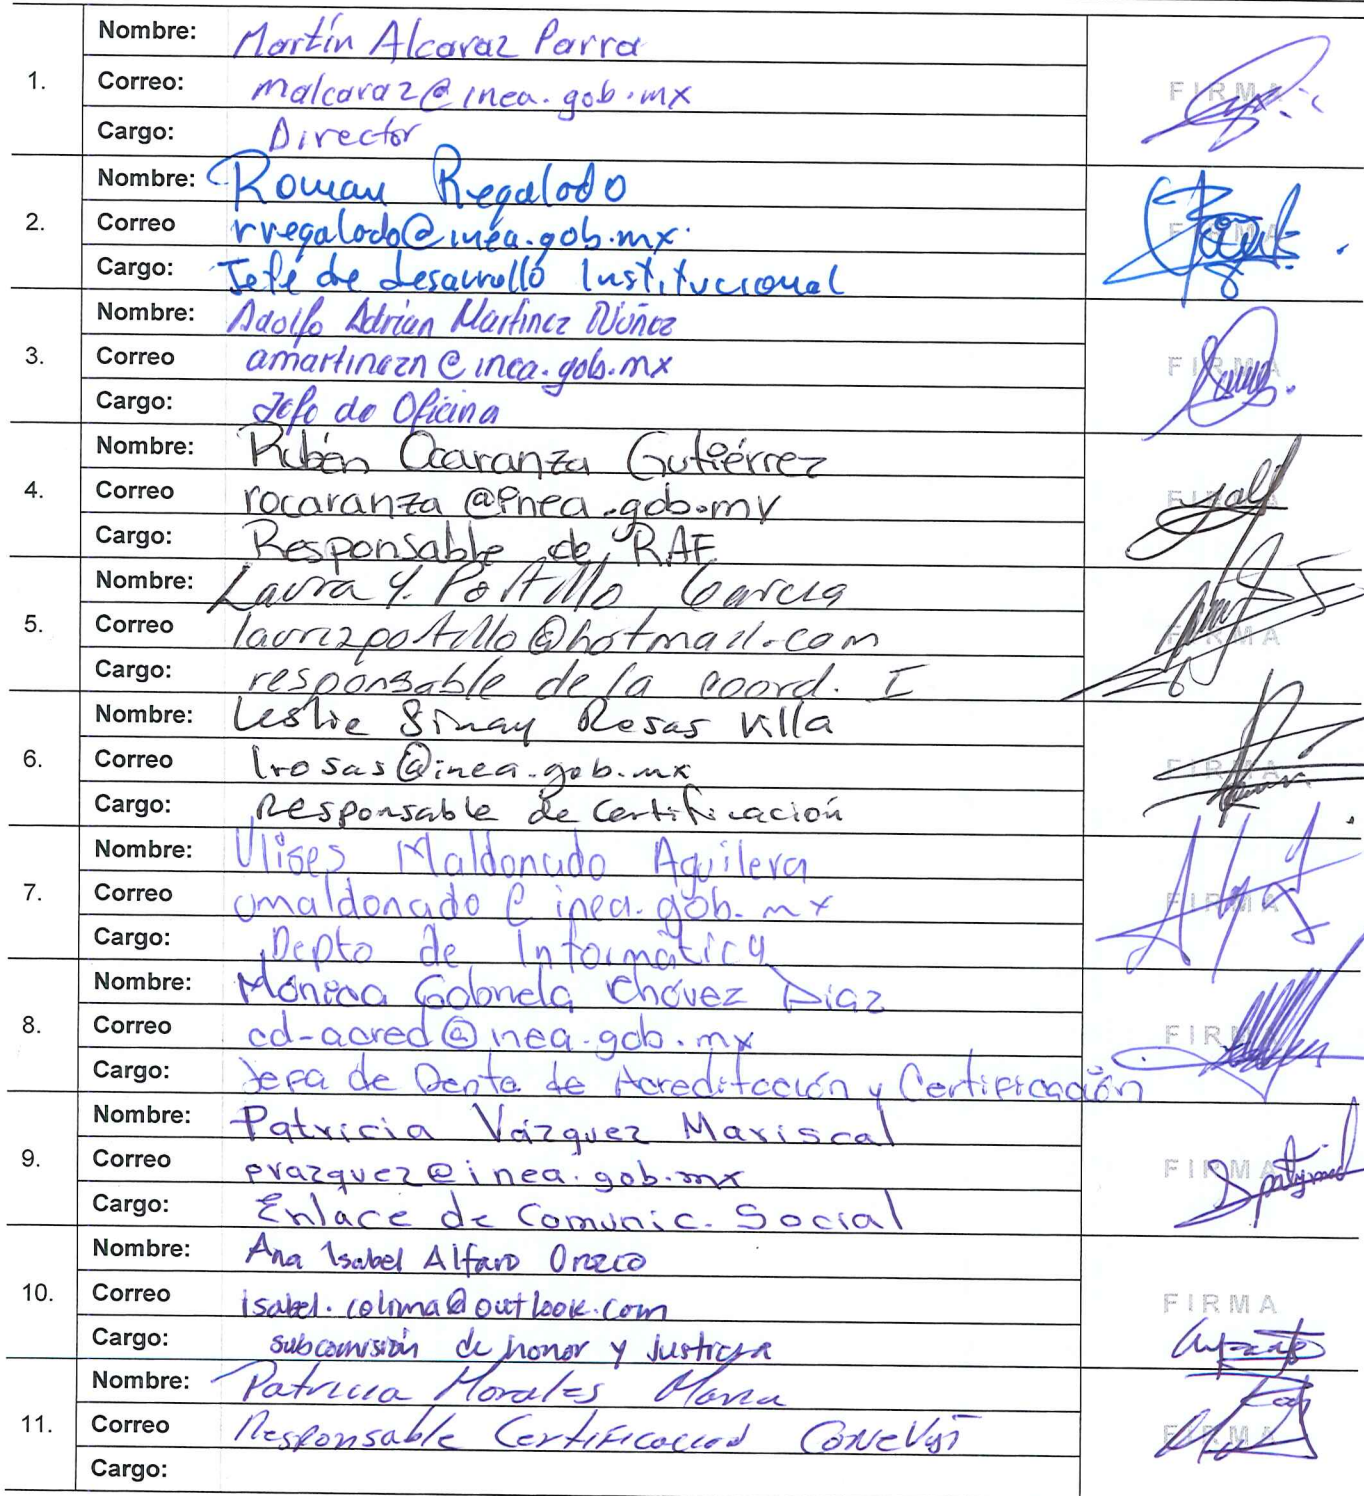 1. Nombre: Martín Alcaraz Parra
Correo: malcaraz@inea.gob.mx FIRMA
Cargo: Director
Nombre: Roman Regalado
2. Correo rregalado@inea.gob.mx FIRMA
Cargo: Jefe de desarrollo Institucional
Nombre: Adolfo Adrian Martinez Núñez
3. Correo amartinezn@inea.gob.mx FIRMA
Cargo: Jefe de Oficina
Nombre: Rubén Ocaranza Gutiérrez
4. Correo rocaranza@inea.gob.mx FIRMA
Cargo: Responsable de RAF
Nombre: Laura Y. Portillo Garcia
5. Correo laurizportillo@hotmail.com FIRMA
Cargo: responsable de la coord. I
Nombre: Leslie Sinay Rosas Villa
6. Correo lrosas@inea.gob.mx FIRMA
Cargo: Responsable de Certificación
Nombre: Ulises Maldonado Aguilera
7. Correo umaldonado@inea.gob.mx FIRMA
Cargo: Depto de Informática
Nombre: Mónica Gabriela Chávez Díaz
8. Correo cd-acred@inea.gob.mx FIRMA
Cargo: Jefa de Depto de Acreditación y Certificación
Nombre: Patricia Vázquez Mariscal
9. Correo pvazquez@inea.gob.mx FIRMA
Cargo: Enlace de Comunic. Social
Nombre: Ana Isabel Alfaro Orozco
10. Correo isabel.colima@outlook.com FIRMA
Cargo: subcomisión de honor y Justicia
Nombre: Patricia Morales
11. Correo Responsable Certificacion FIRMA
Cargo: